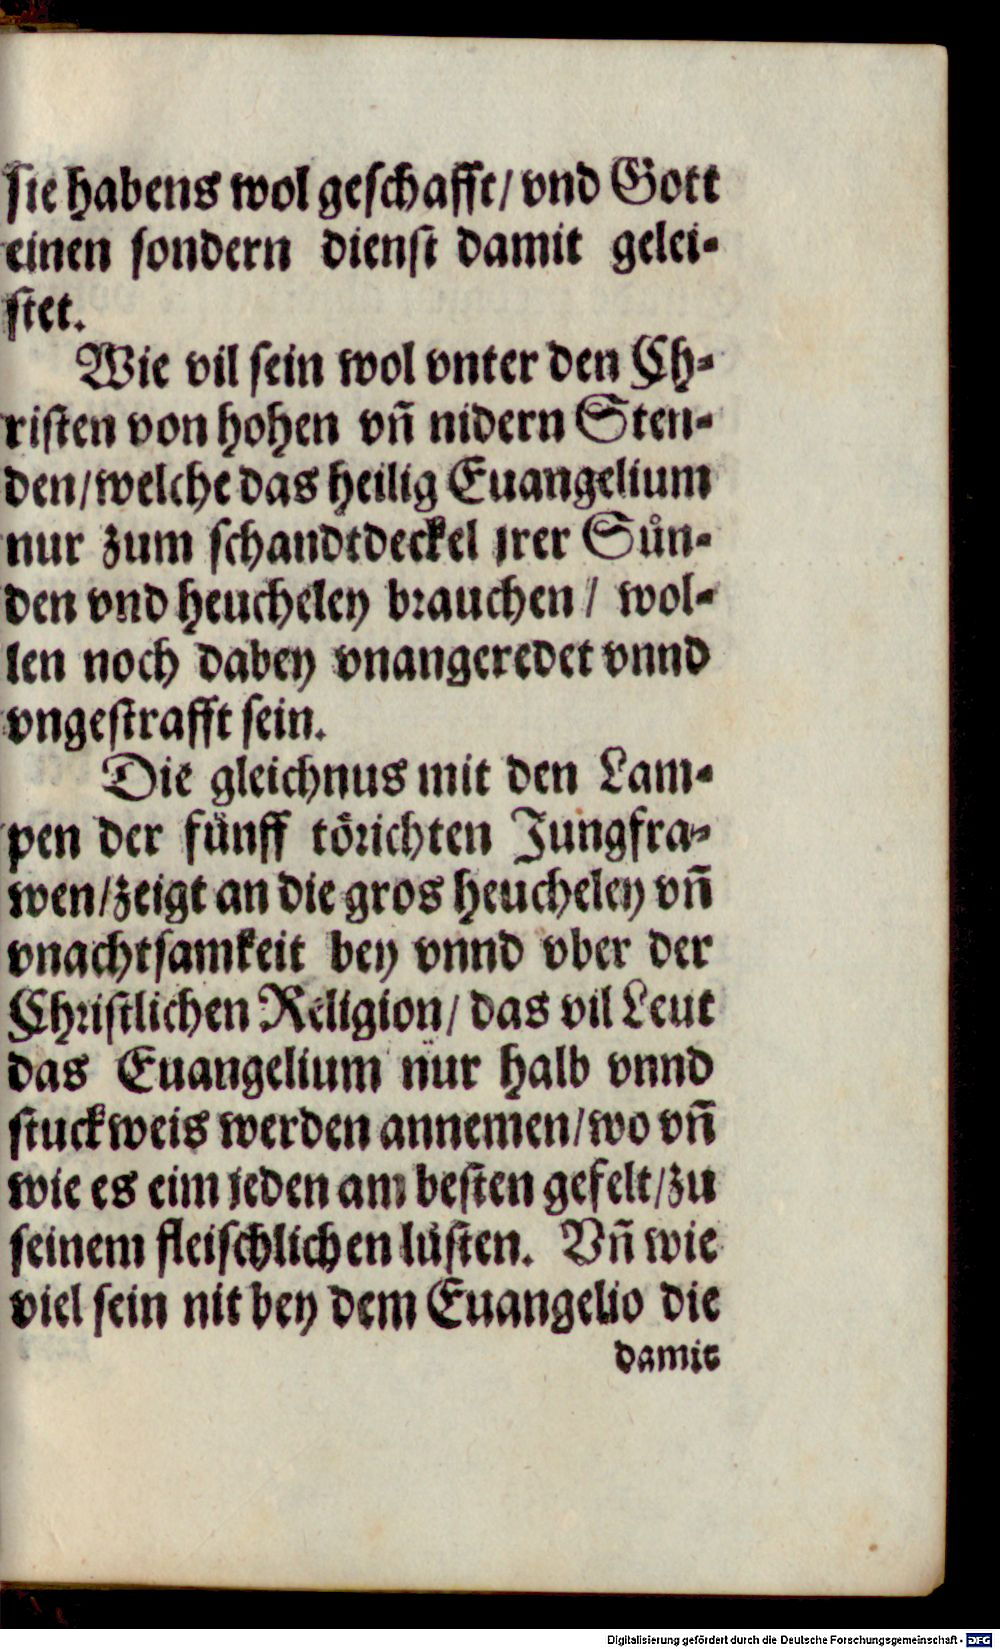 sie habens wol geschafft/ vnd Gott
einen sondern dienst damit gelei-
stet.
Wie vil sein wol vnter den Ch-
risten von hohen vñ nidern Sten-
den/welche das heilig Euangelium
nur zum schandtdeckel jrer Sůn-
den vnd heucheley brauchen/ wol-
len noch dabey vnangeredet vnnd
vngestrafft sein.
Die gleichnus mit den Lam-
pen der fünff törichten Jungfra-
wen/zeigt an die gros heucheley vñ
vnachtsamkeit bey vnnd vber der
Christlichen Religion/ das vil Leut
das Euangelium nur halb vnnd
stuckweis werden annemen/wo vñ
wie es eim jeden am besten gefelt/zu
seinem fleischlichen lüsten. Vñ wie
viel sein nit bey dem Euangelio die
damit
Digitalisierung gefördert durch die Deutsche Forschungsgemeinschaft - DFG